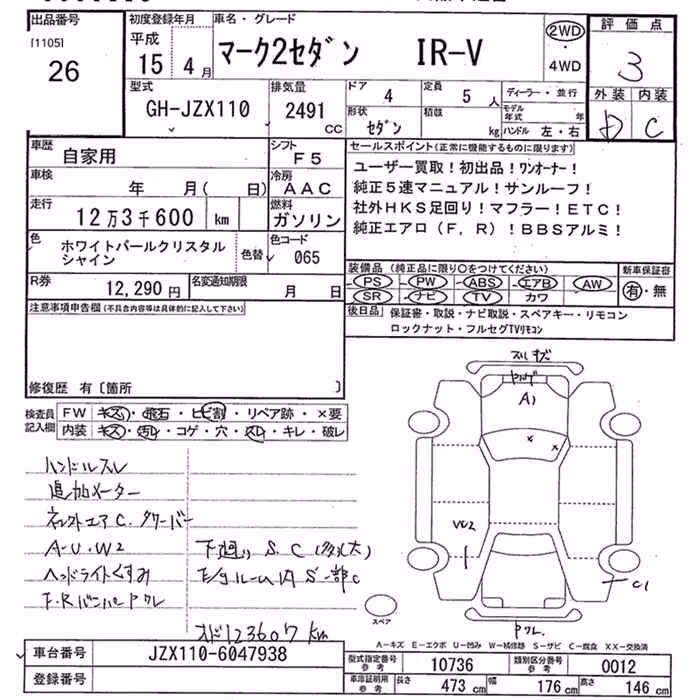 出品番号 初度登録年月 車名・グレード 評価点
[1105]
26
平成
15 4月
マーク2セダン IR-V
2WD
・
4WD
3
型式 排気量 ドア 定員 ディーラー・並行 外装 内装
GH-JZX110 2491 CC 4 5人
形状 積載 モデル年式 年
セダン kg ハンドル 左・右
D C
車歴 自家用 シフト F5
車検 年 月(日) 冷房 AAC
走行 12万3千600 km 燃料 ガソリン
色 ホワイトパールクリスタルシャイン 色替 色コード 065
R券 12,290円 名変通知期限 月 日
セールスポイント(正常に機能するものに限ります)
ユーザー買取!初出品!ワンオーナー!
純正5速マニュアル!サンルーフ!
社外HKS足回り!マフラー!ETC!
純正エアロ(F,R)!BBSアルミ!
装備品(純正品に限り○をつけてください) 新車保証書
PS PW ABS エアB AW 有・無
SR ナビ TV カワ
後日品 保証書・取説・ナビ取説・スペアキー・リモコン
ロックナット・フルセグTVリモコン
注意事項申告欄(不具合内容等は具体的に記入して下さい)
修復歴 有〔箇所 〕
検査員記入欄
FW キズ・飛石・ヒビ割・リペア跡・×要
内装 キズ・汚れ・コゲ・穴・スレ・キレ・破レ
ハンドルスレ
追加メーター
A-U・W2
ヘッドライトくすみ
F.Rバンパーワレ
下廻り S.C
E/gルーム内 S一部C
オド123607km
スレキズ
A1
×
×
W2
C1
ワレ
スペア
A-キズ E-エクボ U-凹み W-補修跡 S-サビ C-腐食 XX-交換済
車台番号 JZX110-6047938
登録番号
型式指定番号 参考 10736 類別区分番号 参考 0012
車庫証明用 参考 長さ 473cm 幅 176cm 高さ 146cm